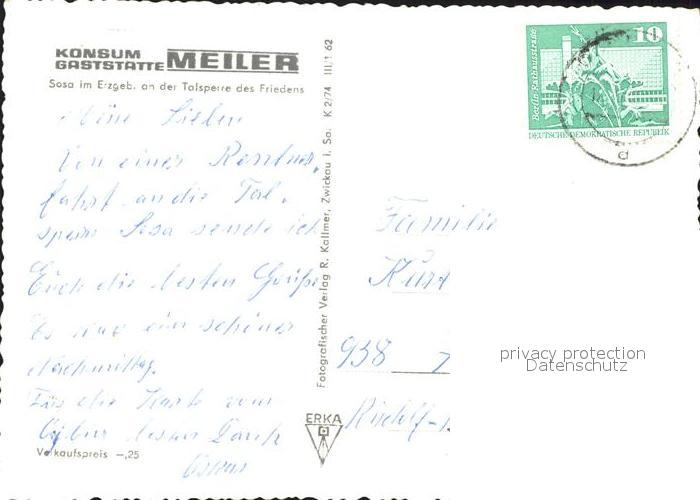 KONSUM
GASTSTÄTTE MEILER
Sosa im Erzgeb. an der Talsperre des Friedens
Meine Lieben
Von einer Rentner-
fahrt an die Tal-
sperre Sosa sende ich
Euch die besten Grüße
Es war ein schöner
Nachmittag.
Für die Karte vom
besten Dank
Verkaufspreis -,25
Fotografischer Verlag R. Kallmer, Zwickau i. Sa. K 2/74 III/1 62
ERKA
10
Berlin-Rathausstraße
DEUTSCHE DEMOKRATISCHE REPUBLIK
d
Familie
Kurt
938
privacy protection
Datenschutz